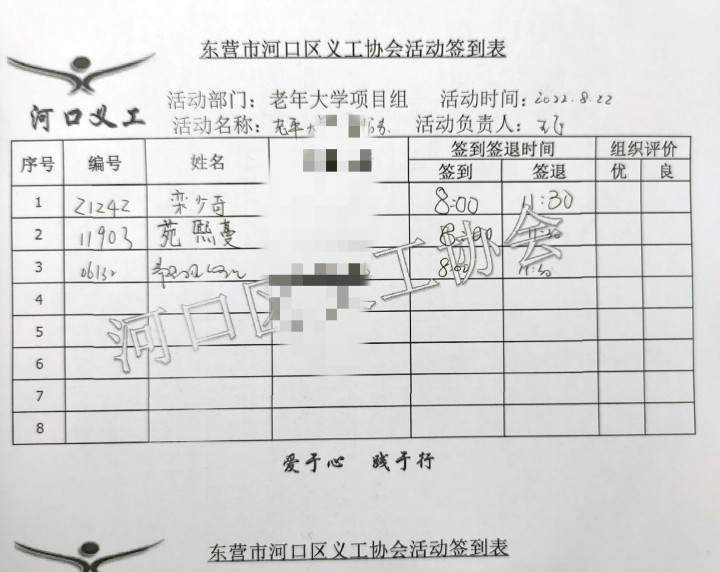 东营市河口区义工协会活动签到表
河口义工
活动部门：老年大学项目组 活动时间：2022.8.22
活动名称：老年 活动负责人：
序号 编号 姓名 签到签退时间 组织评价
签到 签退 优 良
1 21242 栾少奇 8:00 11:30
2 11903 苑熙蔓 8:00 11:30
3 06132 8:00 11:30
4
5
6
7
8
河口区义工协会
爱于心 践于行
东营市河口区义工协会活动签到表